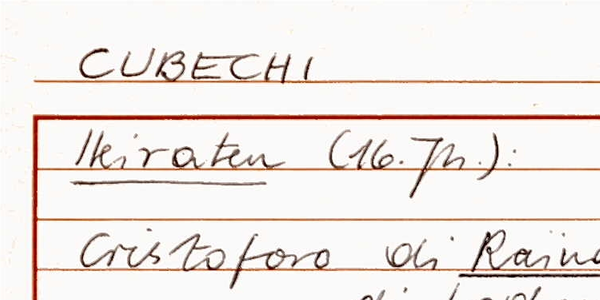 CUBECHI
Heiraten (16. Jh.):
Cristoforo di
di